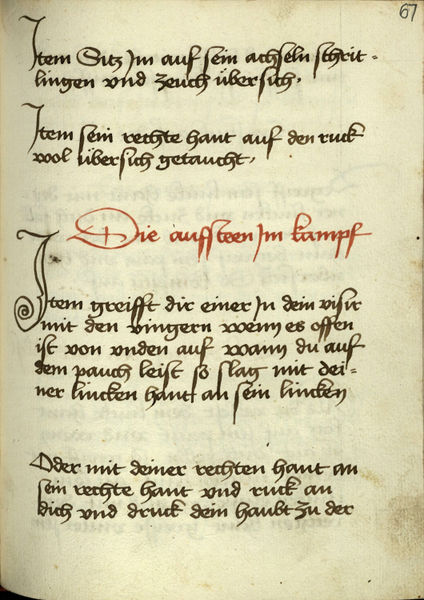 67
Item Sitz Im auf sein achseln schrit-
lingen vnd zeuch übersich,
Item sein rechte hant auf den ruck
wol übersich getaucht,
Die aufsteen Im kampf
Item greifft dir einer In dein visir
mit den vingern wenn es offen
ist von vnden auf wann du auf
dem pauch leist so slag mit dei=
ner lincken hant an sein lincken
Oder mit deiner rechten hant an
sein rechte hant vnd ruck an
dich vnd druck dein haubt zu der